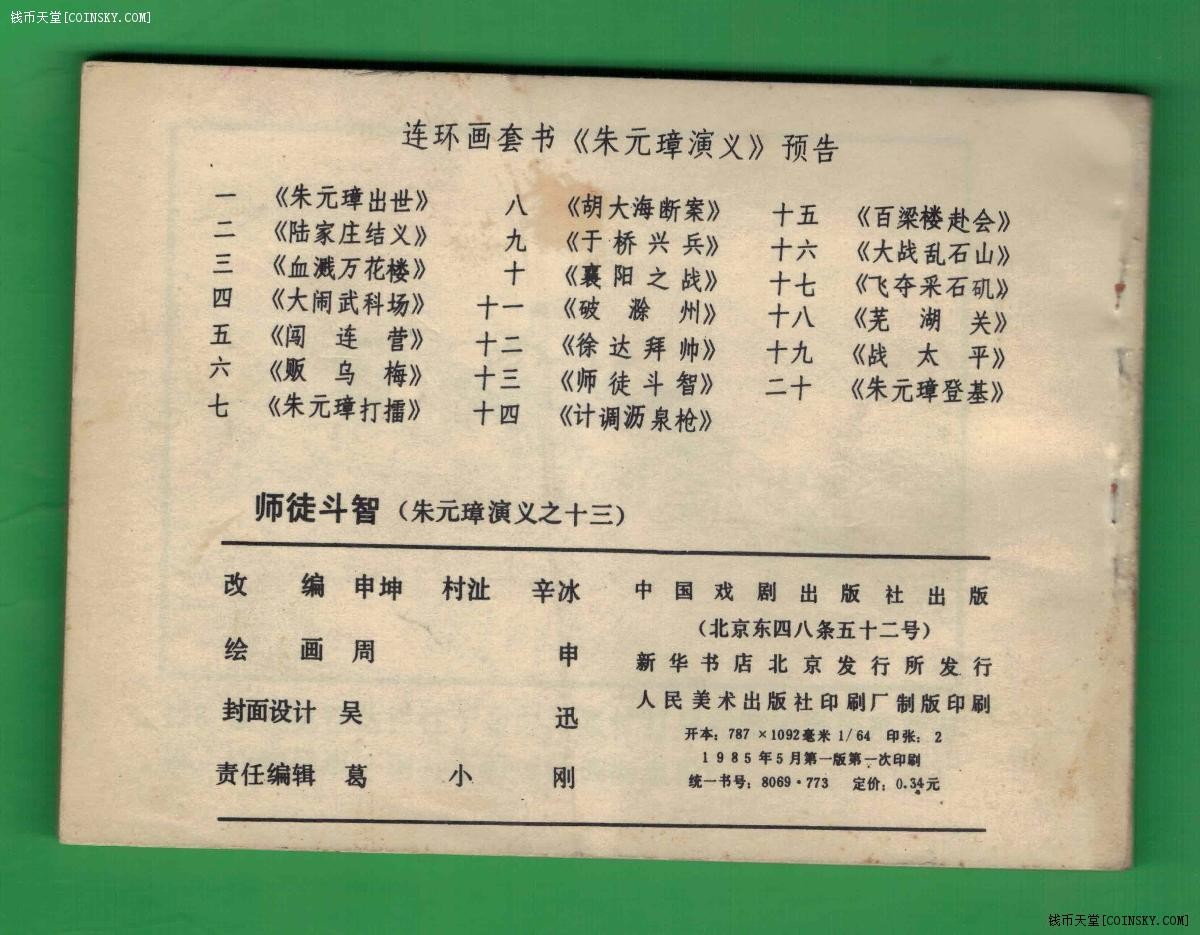 钱币天堂[COINSKY.COM]
连环画套书《朱元璋演义》预告
一 《朱元璋出世》 八 《胡大海断案》 十五 《百梁楼赴会》
二 《陆家庄结义》 九 《于桥兴兵》 十六 《大战乱石山》
三 《血溅万花楼》 十 《襄阳之战》 十七 《飞夺采石矶》
四 《大闹武科场》 十一 《破滁州》 十八 《芜湖关》
五 《闯连营》 十二 《徐达拜帅》 十九 《战太平》
六 《贩乌梅》 十三 《师徒斗智》 二十 《朱元璋登基》
七 《朱元璋打擂》 十四 《计调沥泉枪》
师徒斗智（朱元璋演义之十三）
改编 申坤 村沚 辛冰
绘画 周申
封面设计 吴迅
责任编辑 葛小刚
中国戏剧出版社出版
（北京东四八条五十二号）
新华书店北京发行所发行
人民美术出版社印刷厂制版印刷
开本：787×1092毫米1/64 印张：2
1985年5月第一版第一次印刷
统一书号：8069·773 定价：0.34元
钱币天堂[COINSKY.COM]